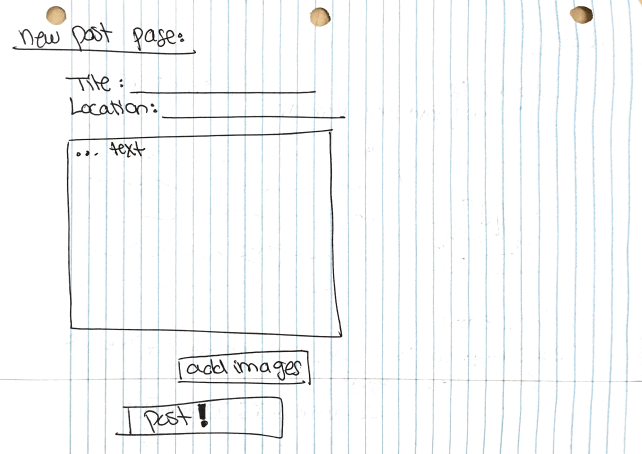 new post page:
Title:
Location:
... text
add images
post!